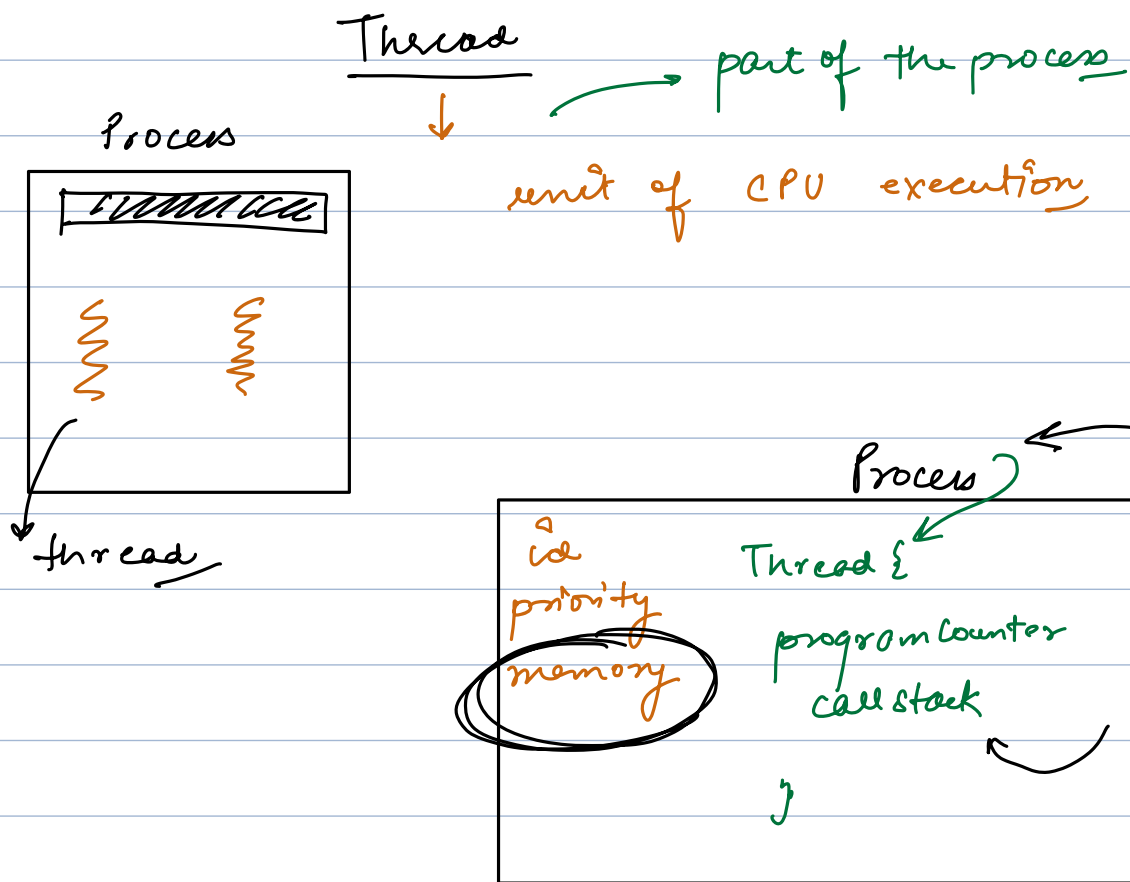 Thread
part of the process
Process
unit of CPU execution
thread
Process
id
priority
memory
Thread {
program Counter
call stack
}